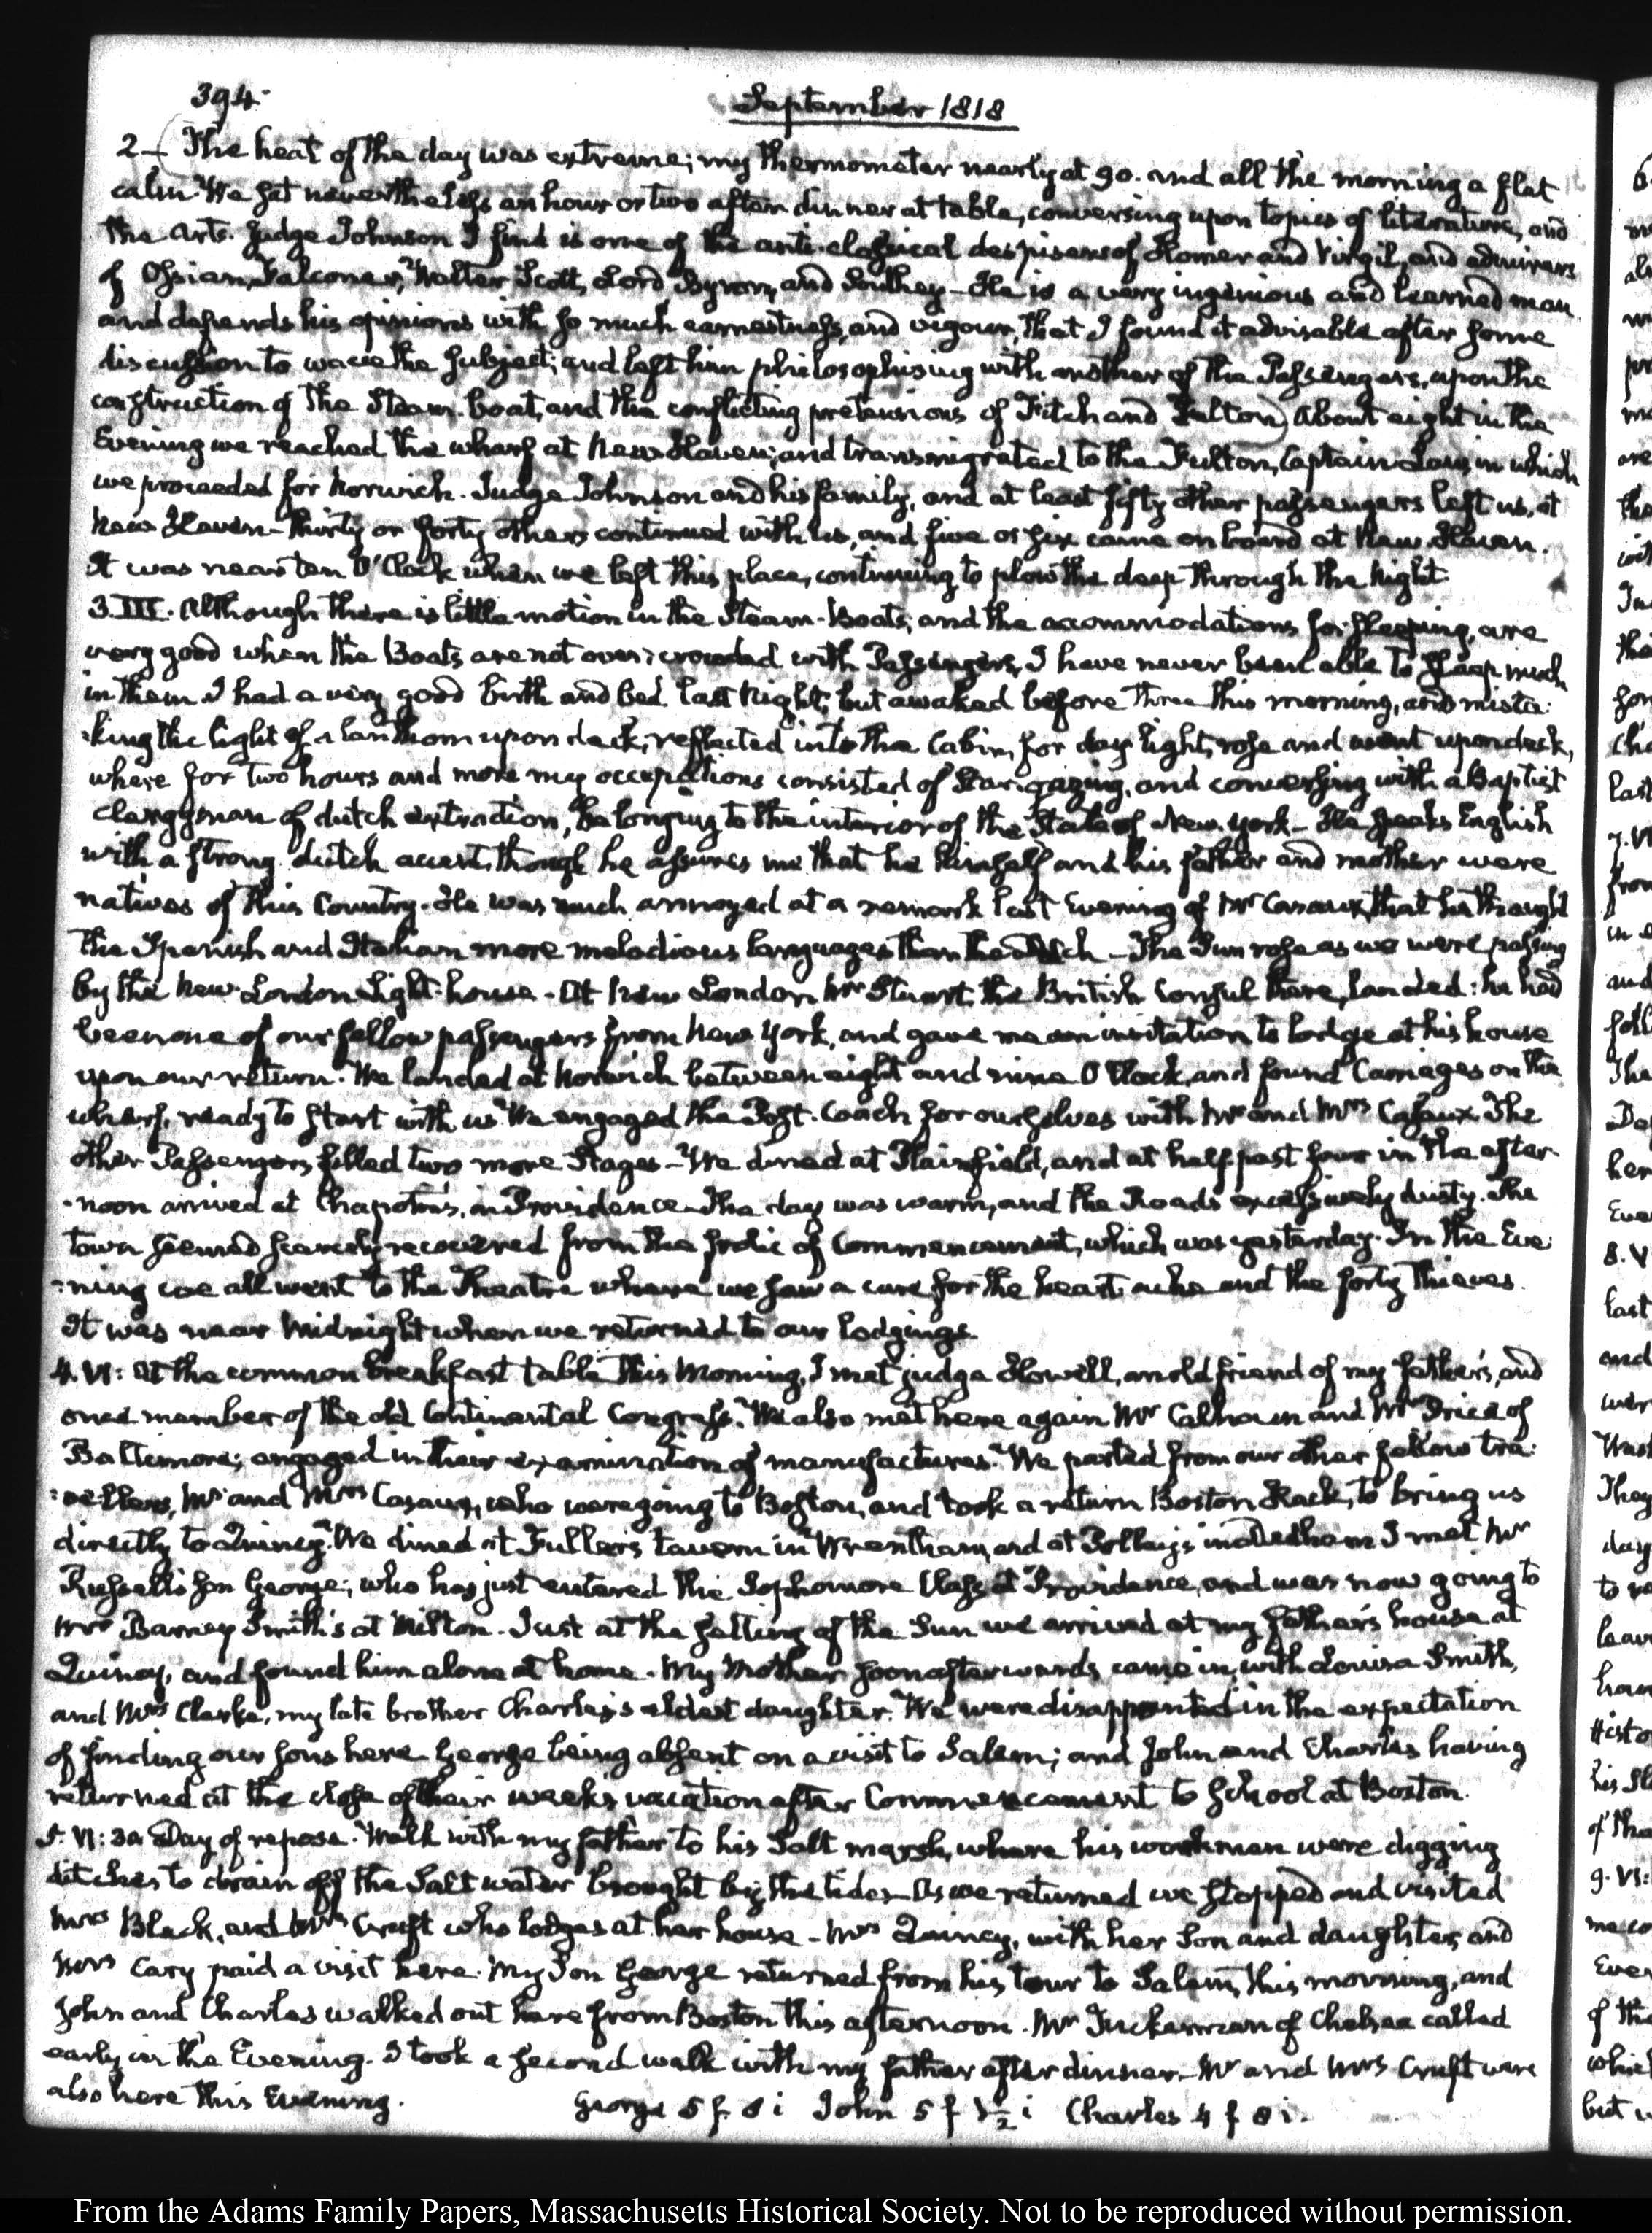 394.
September 1818
2— The heat of the day was extreme; my thermometer nearly at 90. and all the morning a flat
calm. We sat nevertheless an hour or two after dinner at table, conversing upon topics of literature, and
the Arts. Judge Johnson I find is one of the anti-classical despisers of Homer and Virgil, and admirers
of Ossian, Falconer, Walter Scott, Lord Byron, and Southey— He is a very ingenious and learned man
and defends his opinions with so much earnestness, and vigour, that I found it advisable after some
discussion to wave the subject; and left him philosophising with another of the Passengers, upon the
construction of the Steam-boat, and the conflicting pretensions of Fitch and Fulton) About eight in the
Evening we reached the wharf at New Haven; and transmigrated to the Fulton, Captain Law, in which
we proceeded for Norwich. Judge Johnson and his family, and at least fifty other passengers left us, at
New Haven— thirty or forty others continued with us, and five or six came on board at New Haven.
It was near ten O'Clock when we left this place, continuing to plow the deep through the Night.
3. III. Although there is little motion in the Steam-Boats, and the accommodations for sleeping, are
very good when the Boats are not over-crowded with Passengers, I have never been able to sleep much
in them. I had a very good birth and bed last Night; but awaked before three this morning, and mista-
-king the light of a lanthorn upon deck, reflected into the Cabin, for day light, rose and went upon deck,
where for two hours and more my occupations consisted of Star-gazing, and conversing with a Baptist
Clergyman of dutch extraction, belonging to the interior of the State of New York— He speaks English
with a strong dutch accent, though he assures me that he himself and his father and mother were
natives of this Country. He was much annoyed at a remark last Evening of Mr Cazaux, that he thought
the Spanish and Italian more melodious languages than the Dutch— The Sun rose as we were passing
by the New-London Light-house. At New London Mr Stuart the British Consul there, landed: he had
been one of our fellow passengers from New York, and gave me an invitation to lodge at his house
upon our return. We landed at Norwich between eight and nine O'Clock, and found Carriages on the
wharf, ready to start with us. We engaged the Post-Coach for ourselves with Mr and Mrs Cazaux. The
other Passengers, filled two more Stages— We dined at Plainfield, and at half past four in the after-
-noon arrived at Chapotin's, in Providence. The day was warm, and the Roads excessively dusty. The
town seemed scarcely recovered from the frolic of Commencement, which was yesterday. In the Eve-
-ning we all went to the Theatre where we saw a cure for the heart ache and the forty thieves.
It was near Midnight when we returned to our lodgings.
4. VI: At the common breakfast table this Morning, I met judge Howell, an old friend of my father's, and
once member of the old Continental Congress. We also met here again Mr Calhoun and Mr Price of
Baltimore; engaged in their examination of manufactures. We parted from our other fellow tra-
-vellers, Mr and Mrs Cazaux, who were going to Boston, and took a return Boston Hack, to bring us
directly to Quincy. We dined at Fuller's tavern in Wrentham, and at Polley's in Dedham I met Mr
Russell's Son George; who has just entered the Sophomore Class at Providence, and was now going to
Mrs Barney Smith's at Milton. Just at the setting of the Sun we arrived at my father's house at
Quincy, and found him alone at home. My Mother soon afterwards came in, with Louisa Smith,
and Mrs Clarke, my late brother Charles's eldest daughter. We were disappointed in the expectation
of finding our sons here George being absent on a visit to Salem; and John and Charles having
returned at the close of their week's vacation after Commencement to School at Boston.
5. VI: 30. Day of repose. Walk with my father to his Salt marsh, where his workmen were digging
ditches to drain off the Salt water brought by the tides— As we returned we stopped and visited
Mrs Black, and Mrs Cruft who lodges at her house— Mrs Quincy, with her Son and daughters, and
Mrs Cary paid a visit here. My Son George returned from his tour to Salem, this morning, and
John and Charles walked out here from Boston this afternoon. Mr Tuckerman of Chelsea called
early in the Evening. I took a second walk with my father after dinner— Mr and Mrs Cruft were
also here this Evening.
George 5 f. 8 i John 5 f 1½ i Charles 4 f 8 i.
From the Adams Family Papers, Massachusetts Historical Society. Not to be reproduced without permission.